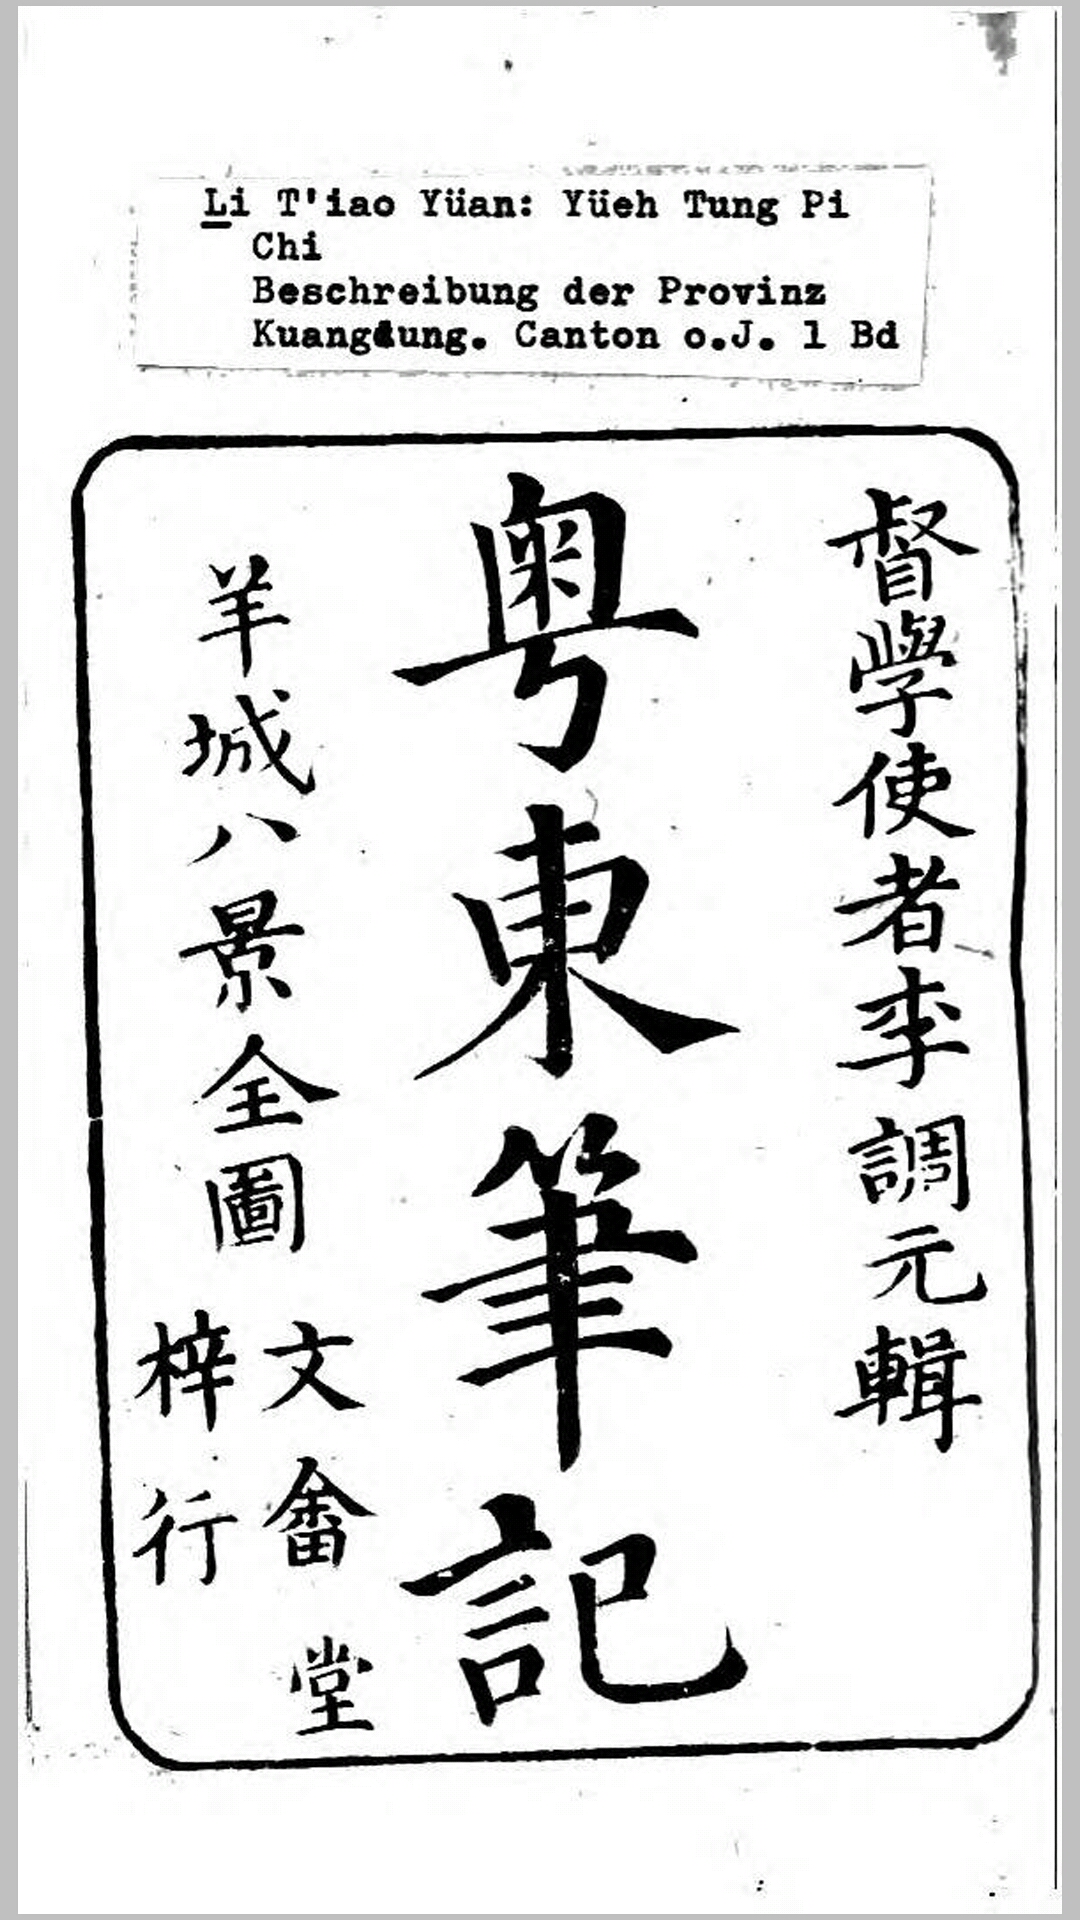 Li T'iao Yüan: Yüeh Tung Pi
Chi
Beschreibung der Provinz
Kuangtung. Canton o.J. 1 Bd
督學使者李調元輯
粵東筆記
羊城八景全圖
文畬堂
梓行